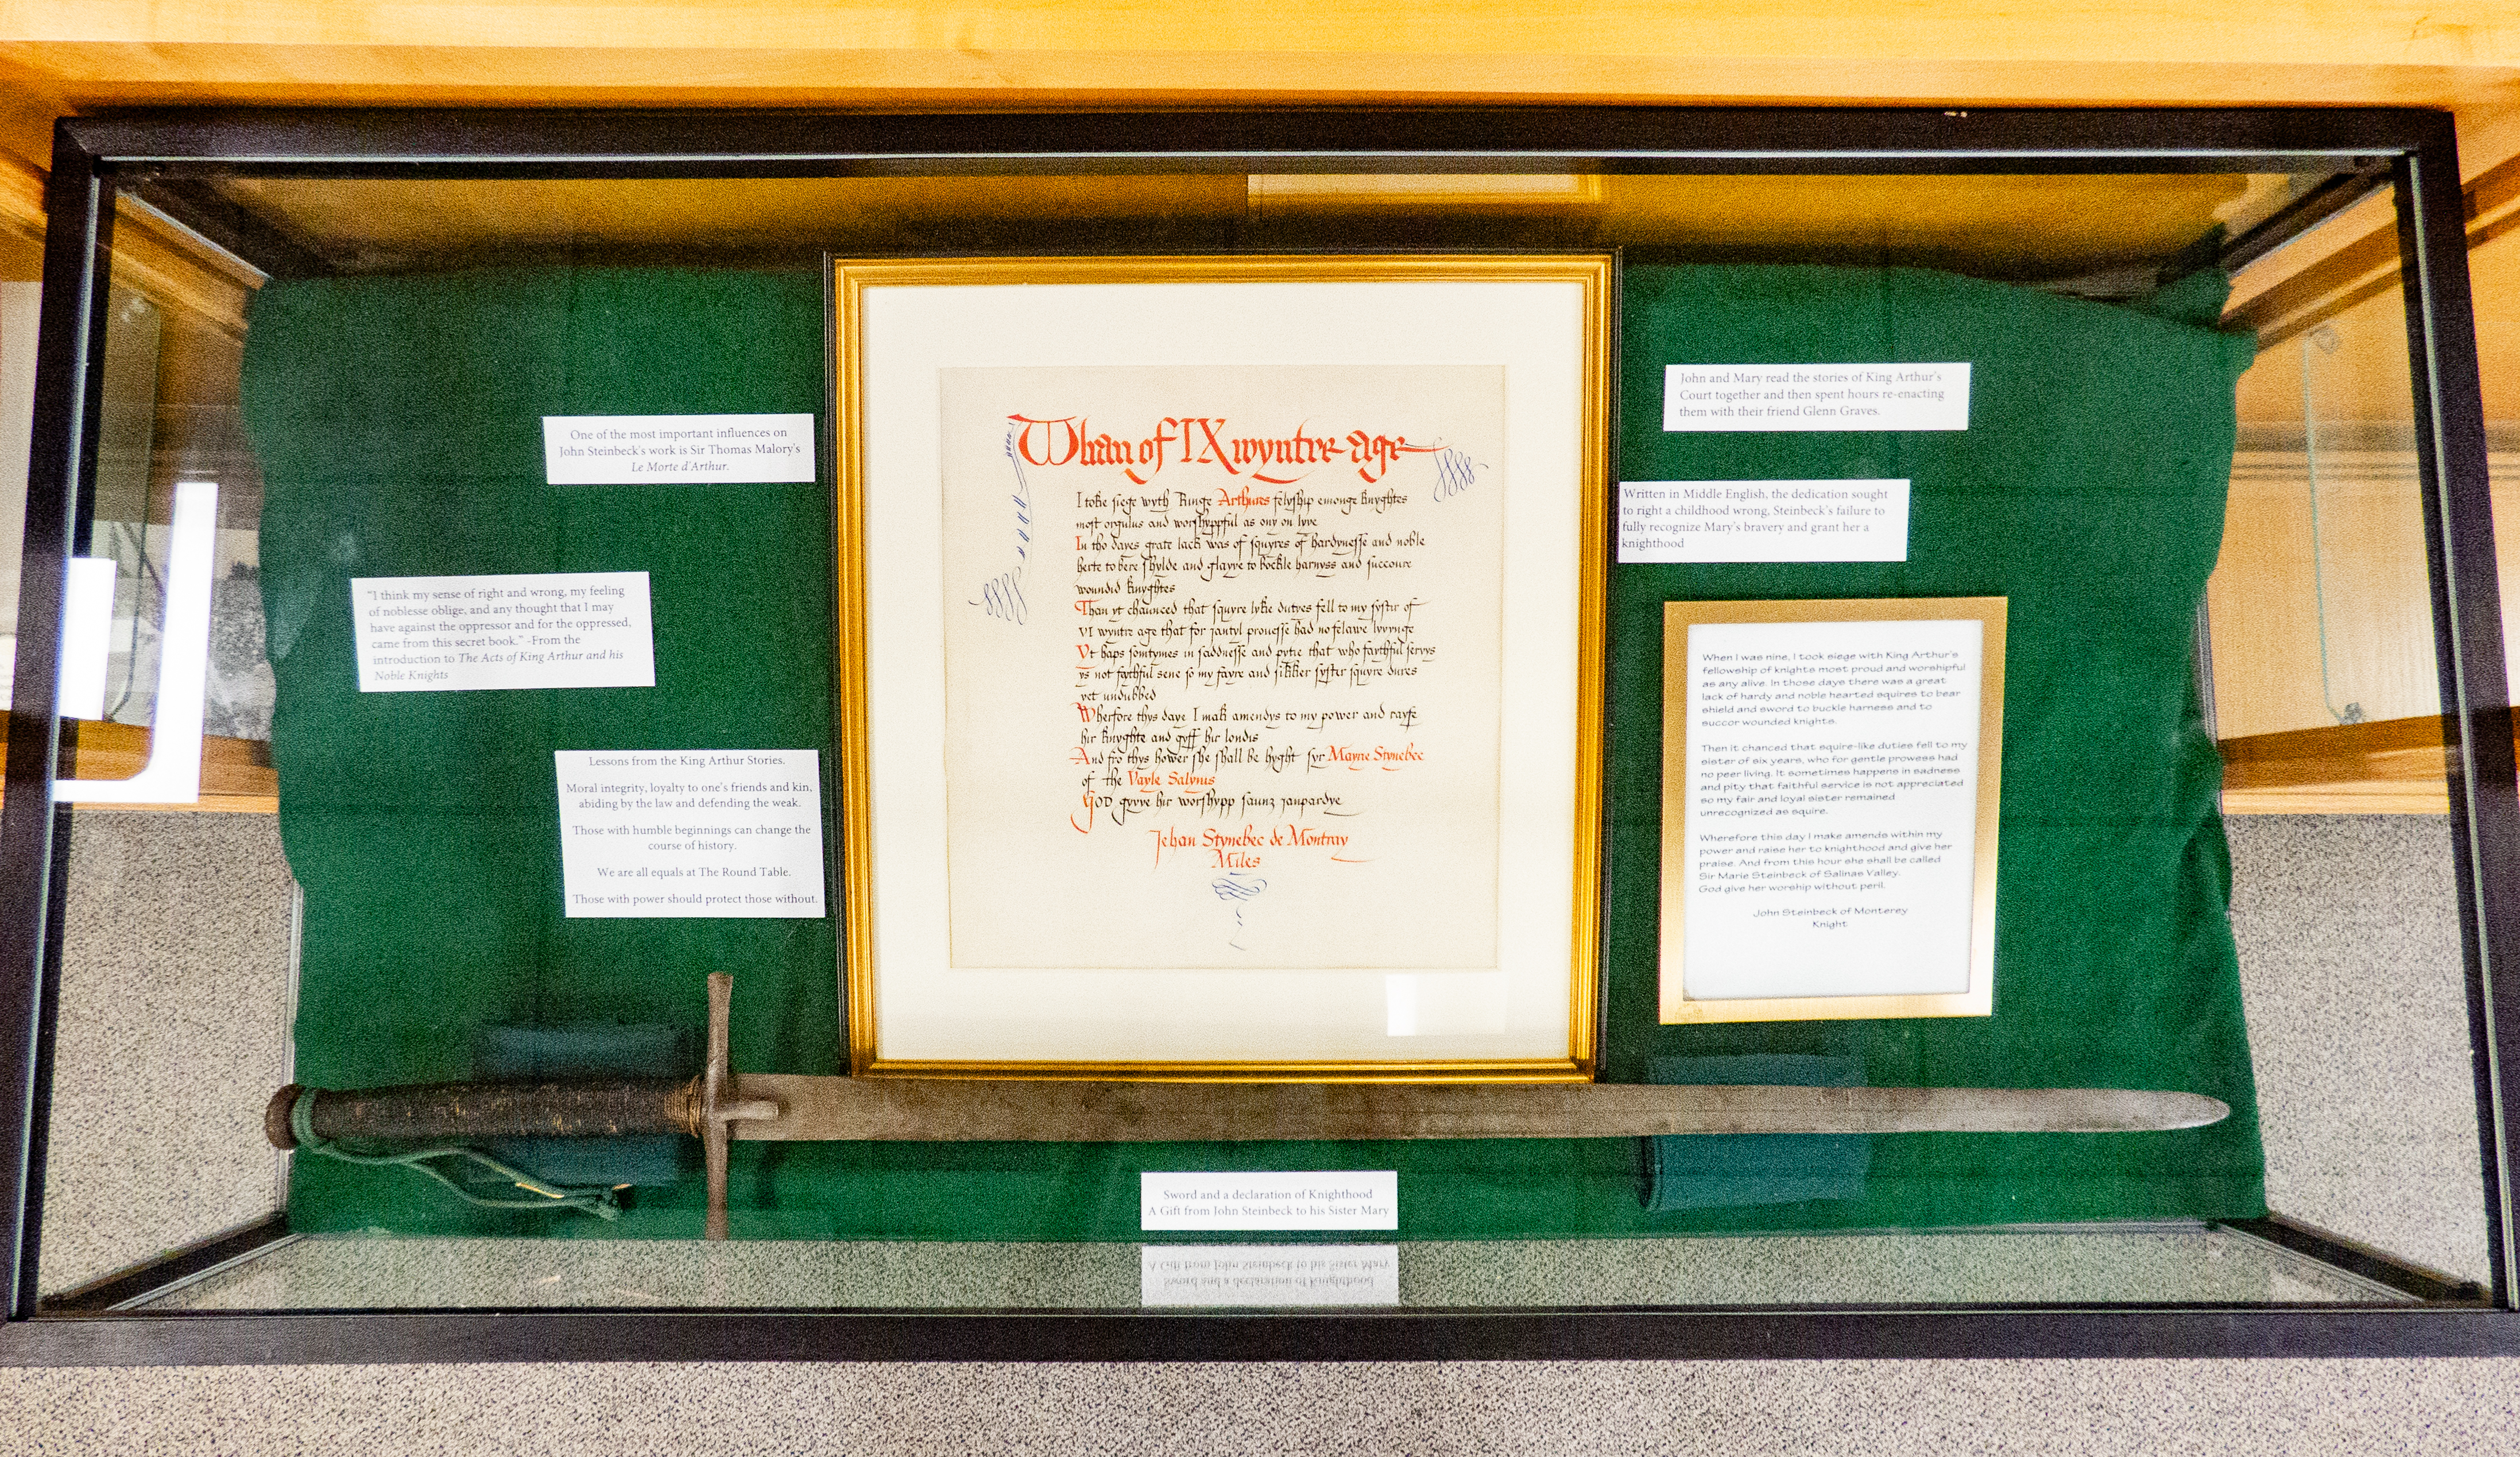 One of the most important influences on
John Steinbeck's work is Sir Thomas Malory's
Le Morte d'Arthur.
"I think my sense of right and wrong, my feeling
of noblesse oblige, and any thought that I may
have against the oppressor and for the oppressed,
came from this secret book." -From the
introduction to The Acts of King Arthur and his
Noble Knights
Lessons from the King Arthur Stories.
Moral integrity, loyalty to one's friends and kin,
abiding by the law and defending the weak.
Those with humble beginnings can change the
course of history.
We are all equals at The Round Table.
Those with power should protect those without.
Whan of IX wyntre age
I toke siege wyth Kinge Arthures felyship emonge knyghtes
most orgulus and worshyppful as ony on lyve
In tho dayes grate lack was of squyres of hardynesse and noble
herte to bere shylde and glayve to bockle harnyss and succoure
wounded knyghtes
Than yt chaunced that squyre lyke dutyes fell to my systir of
VI wyntre age that for jantyl prouesse had no felawe lyvynge
Yt haps somtymes in saddnesse and pytie that who faythful servys
ys not faythful sene so my fayre and sikker syster squyre dures
yet undubbed
Wherfore thys daye I mak amendys to my power and rayse
hir knyghte and gyff hir londis
And fro thys hower she shall be hyght syr Mayrie Stynebec
of the Vayle Salynis
God gyvve hir worshypp saunz jaupardye
Jehan Stynebec de Montray
Miles
John and Mary read the stories of King Arthur's
Court together and then spent hours re-enacting
them with their friend Glenn Graves.
Written in Middle English, the dedication sought
to right a childhood wrong, Steinbeck's failure to
fully recognize Mary's bravery and grant her a
knighthood
When I was nine, I took siege with King Arthur's
fellowship of knights most proud and worshipful
as any alive. In those days there was a great
lack of hardy and noble hearted squires to bear
shield and sword to buckle harness and to
succor wounded knights.
Then it chanced that squire-like duties fell to my
sister of six years, who for gentle prowess had
no peer living. It sometimes happens in sadness
and pity that faithful service is not appreciated
so my fair and loyal sister remained
unrecognized as squire.
Wherefore this day I make amends within my
power and raise her to knighthood and give her
praise. And from this hour she shall be called
Sir Marie Steinbeck of Salinas Valley.
God give her worship without peril.
John Steinbeck of Monterey
Knight
Sword and a declaration of Knighthood
A Gift from John Steinbeck to his Sister Mary